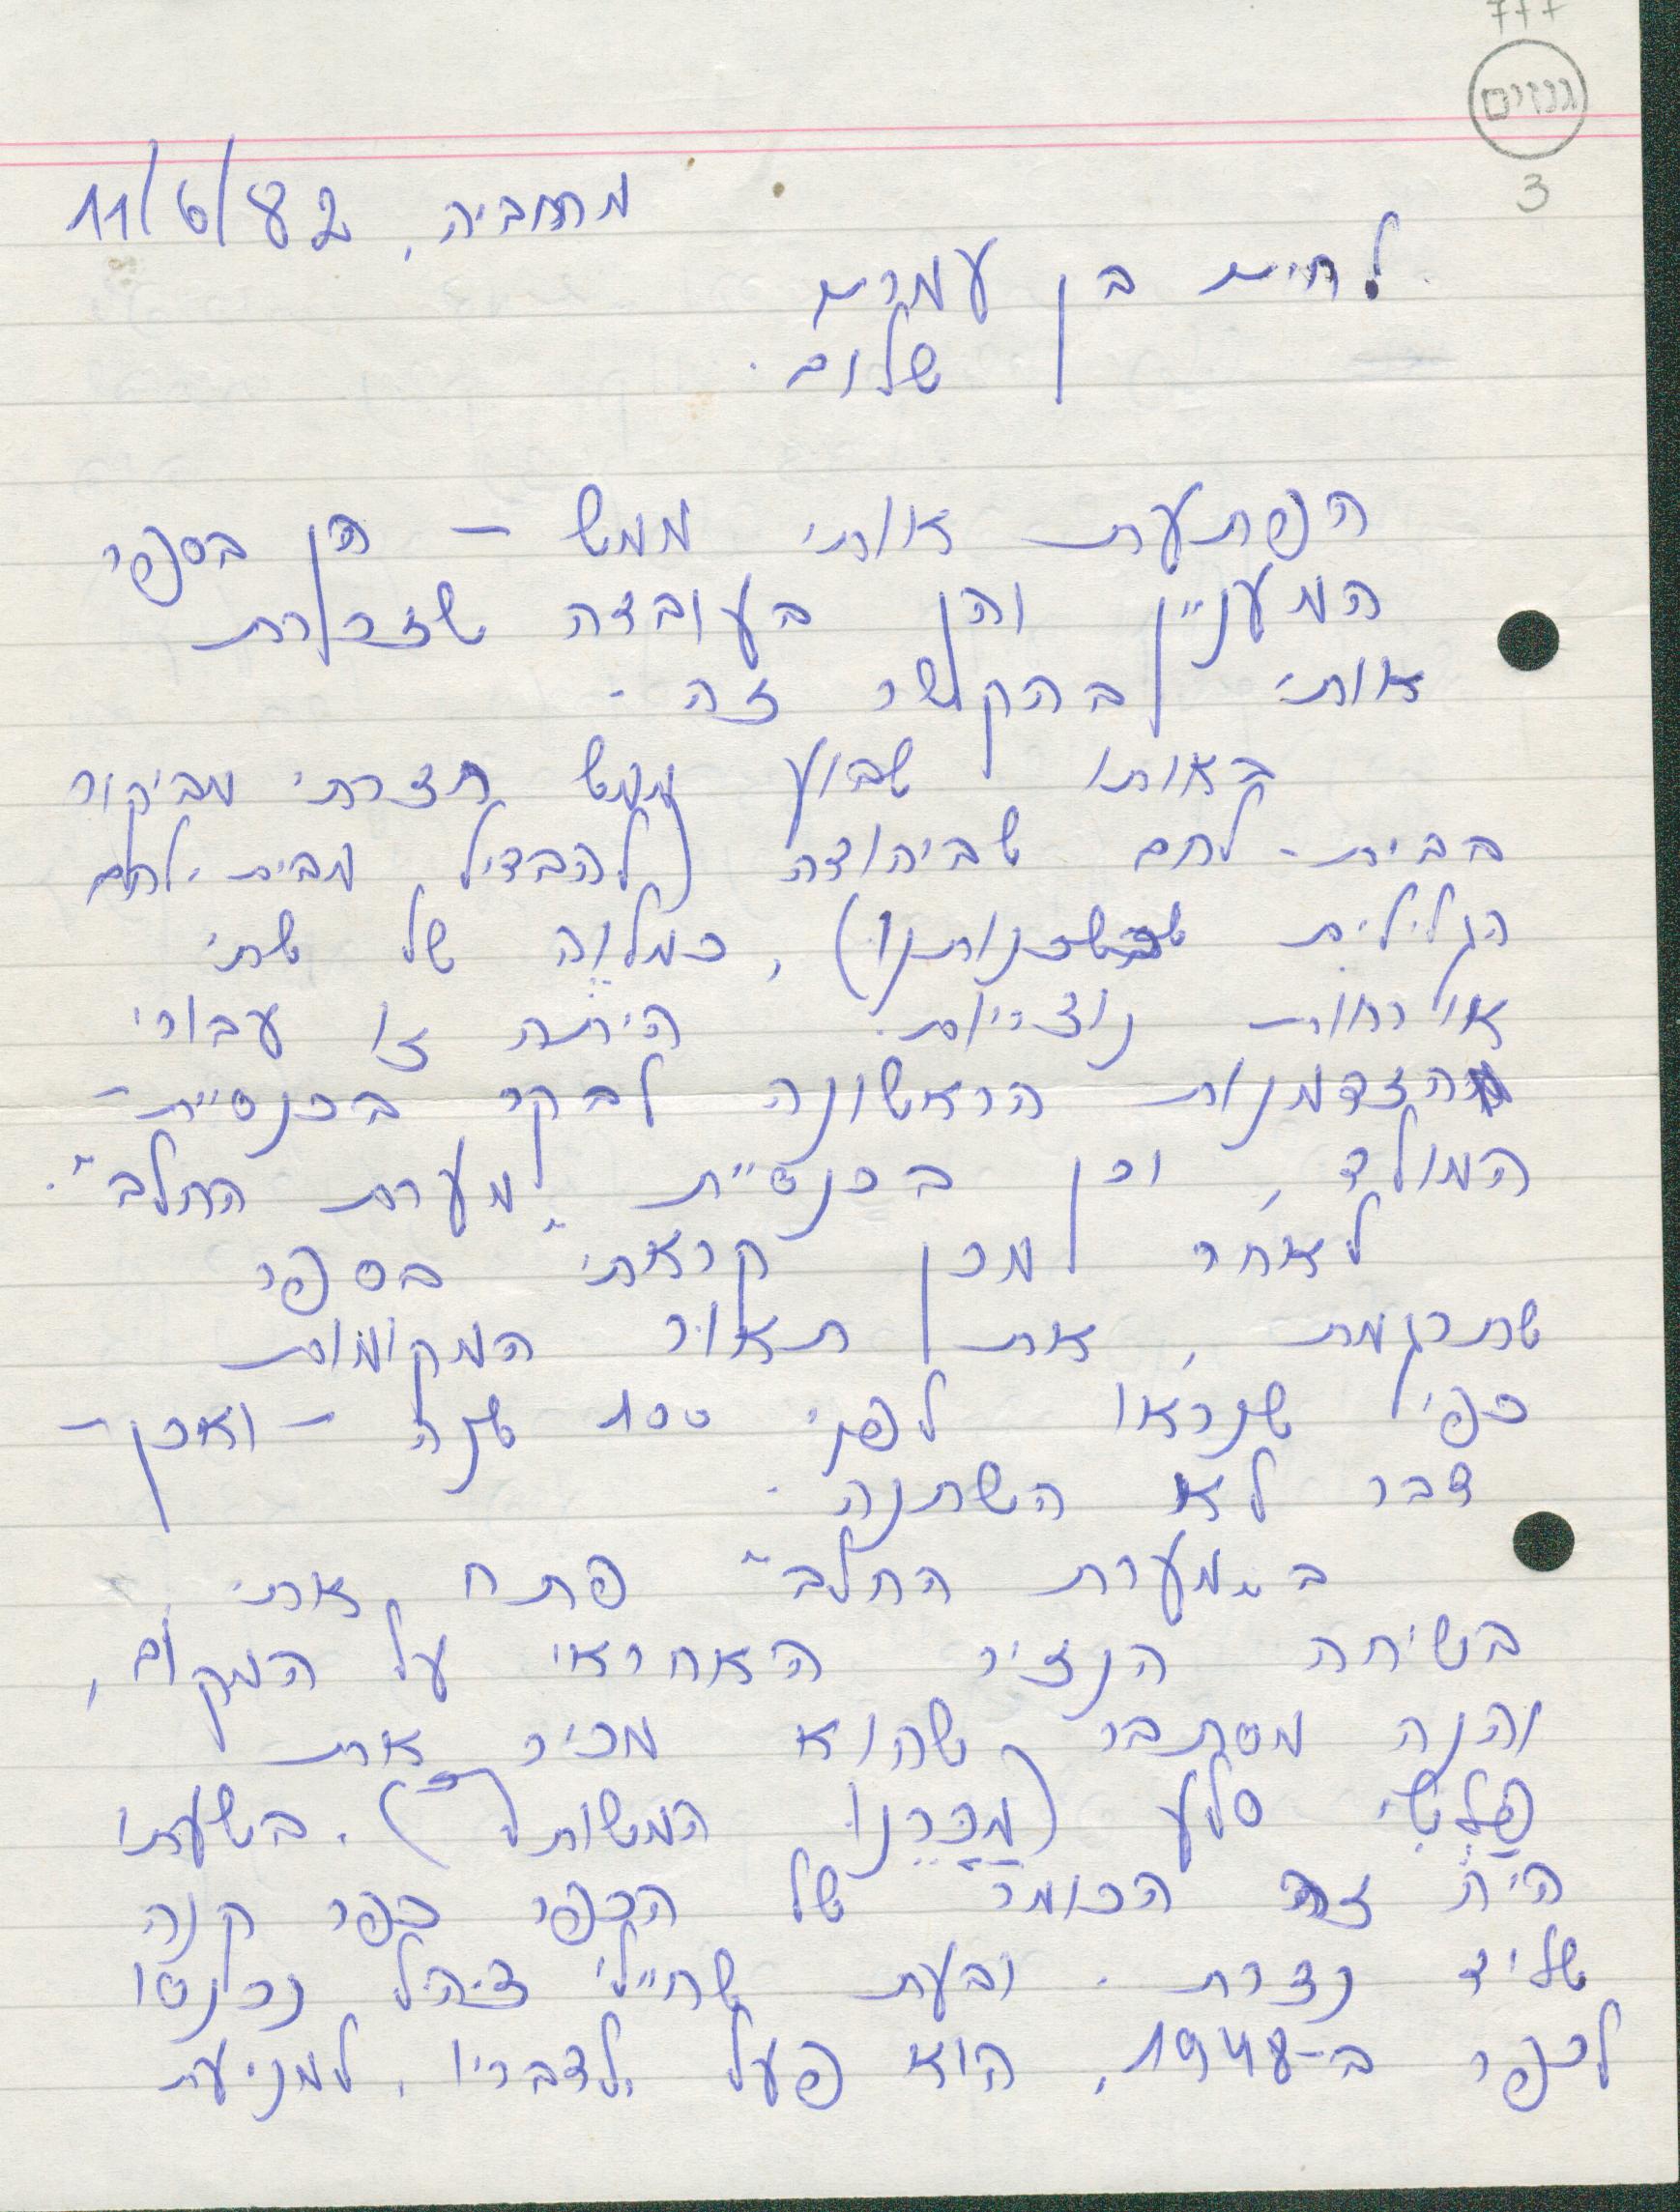 777
גנזים
3
מרחביה, 11/6/82
לחיים בן עמרם
שלום.
הפתעת אותי ממש – הן בספר
המעניין והן בעובדה שזכרת
אותי בהקשר זה.
באותו שבוע ממש חזרתי מביקור
בבית-לחם שביהודה (להבדיל מבית-לחם
הגלילית שבשכנותנו), כמלוה של שתי
אורחות נוצריות. היתה זו עבורי
ההזדמנות הראשונה לבקר בכנסיית-
המולד, וכן בכנסיית "מערת החלב".
לאחר מכן קראתי בספר
שתרגמת, את תאור המקומות
כפי שנראו לפני 100 שנה – ואכן –
דבר לא השתנה.
ב"מערת החלב" פתח אתי
בשיחה הנזיר האחראי על המקום,
והנה מסתבר שהוא מכיר את
פלטי סלע (מכרנו המשותף). בשעתו
היה זה הכומר של הכפר כפר קנה
שליד נצרת. ובעת שחיילי צה"ל נכנסו
לכפר ב-1948, הוא פעל, לדבריו, למניעת